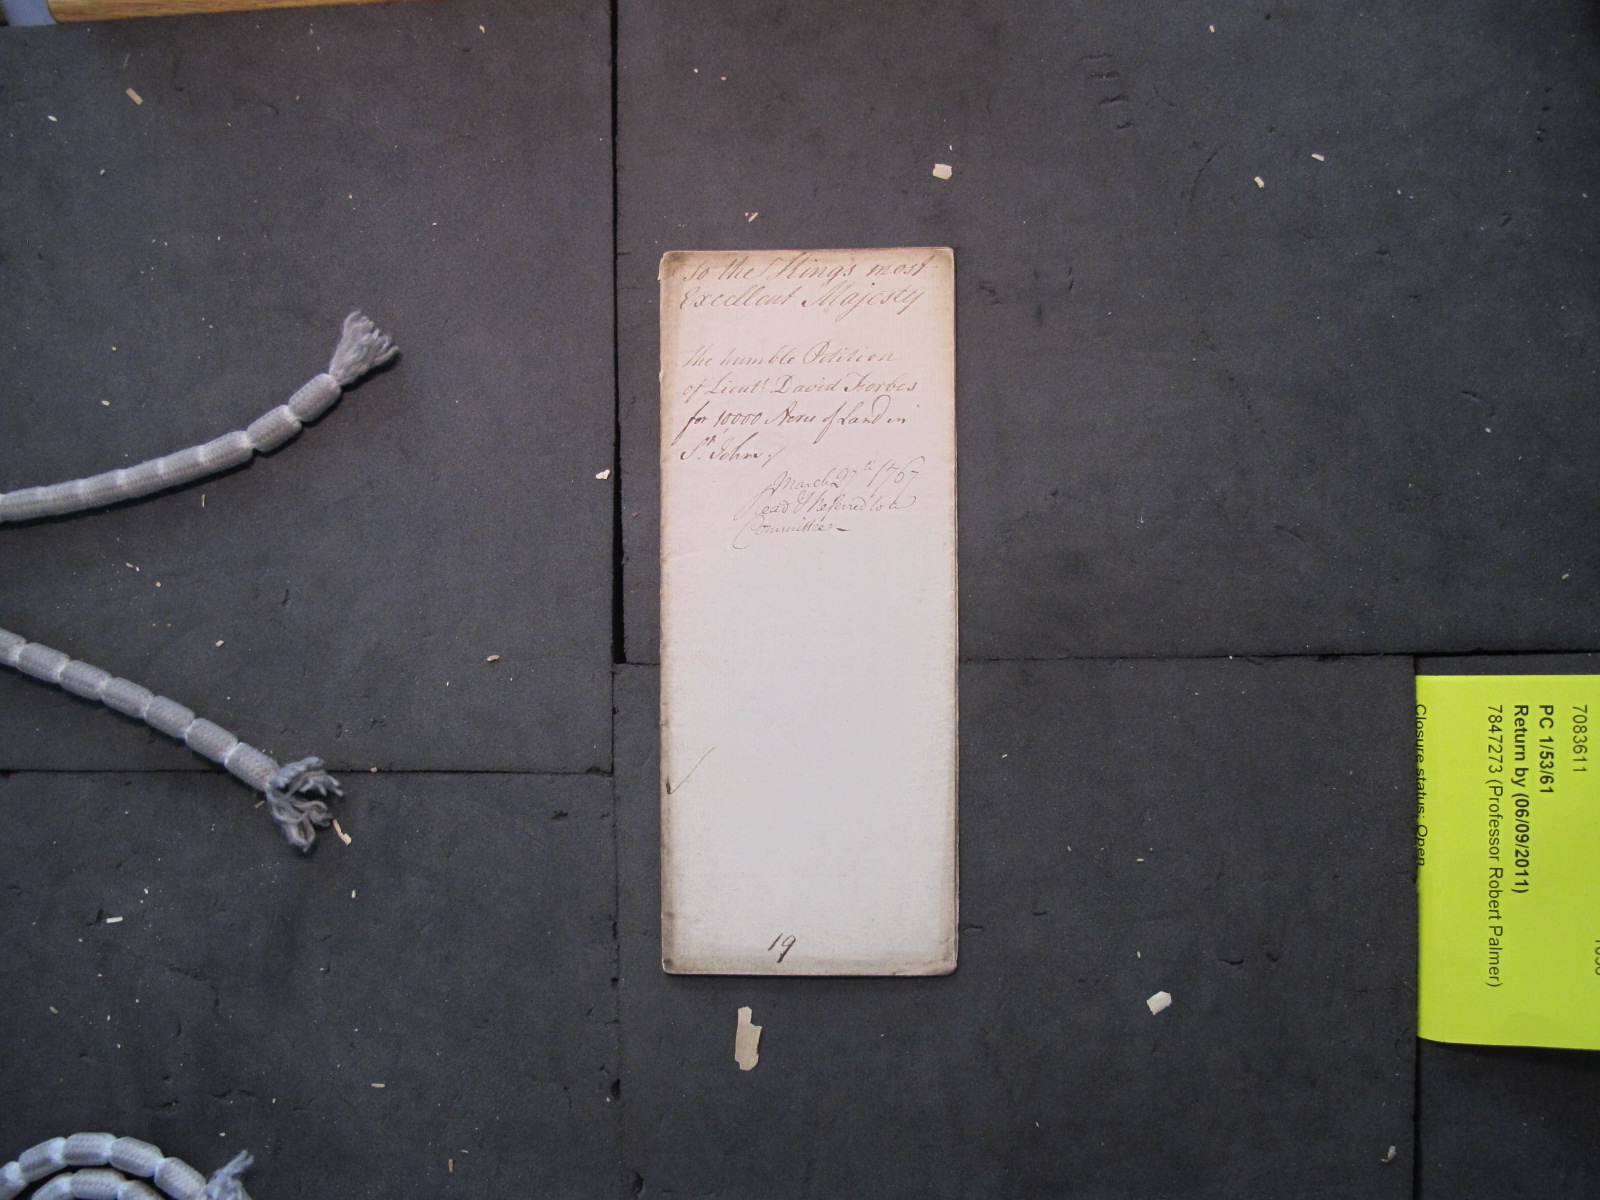 To the King's most
Excellent Majesty
the humble Petition
of Lieut.t David Forbes
for 10000 Acres of Land in
St. Johns.
March 27th 1767
Read & Referred to a
Committee -
19
7083611
PC 1/53/61
Return by (06/09/2011)
7847273 (Professor Robert Palmer)
Closure status: Open